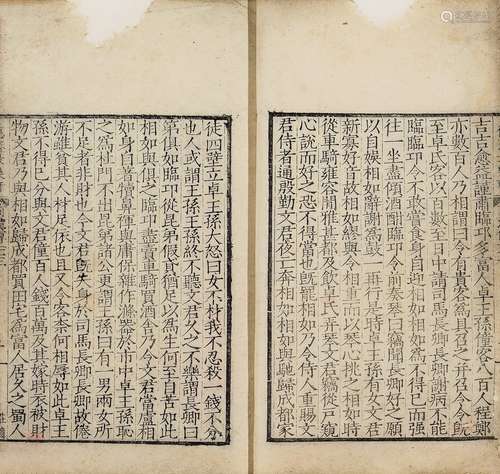 吉吉愈益謹肅臨邛多富人卓王孫僮客八百人程鄭
亦數百人乃相謂曰令有貴客為具召之并召令令既
至卓氏客以百數至日中請司馬長卿長卿謝病不能
臨臨邛令不敢嘗食身自迎相如相如為不得已而強
往一坐盡傾酒酣臨邛令前奏琴曰竊聞長卿好之願
以自娛相如辭謝為鼓一再行是時卓王孫有女文君
新寡好音故相如繆與令相重而以琴心挑之相如時
從車騎雍容閒雅甚都及飲卓氏弄琴文君竊從戶窺
心說而好之恐不得當也既罷相如乃令侍人重賜文
君侍者通殷勤文君夜亡奔相如相如與馳歸成都家
徒四壁立卓王孫大怒曰女不材我不忍殺一錢不分
也人或謂王孫王孫終不聽文君久之不樂謂長卿曰
第俱如臨邛從昆弟假貣猶足以為生何至自苦如此
相如與俱之臨邛盡賣車騎買酒舍乃令文君當盧相
如身自著犢鼻褌與庸保雜作滌器於市中卓王孫恥
之為杜門不出昆弟諸公更謂王孫曰有一男兩女所
不足者非財也今文君既失身於司馬長卿長卿故倦
游雖貧其人材足依也且又令客奈何相辱如此卓王
孫不得已分與文君僮百人錢百萬及其嫁時衣被財
物文君乃與相如歸成都買田宅為富人居久之蜀人